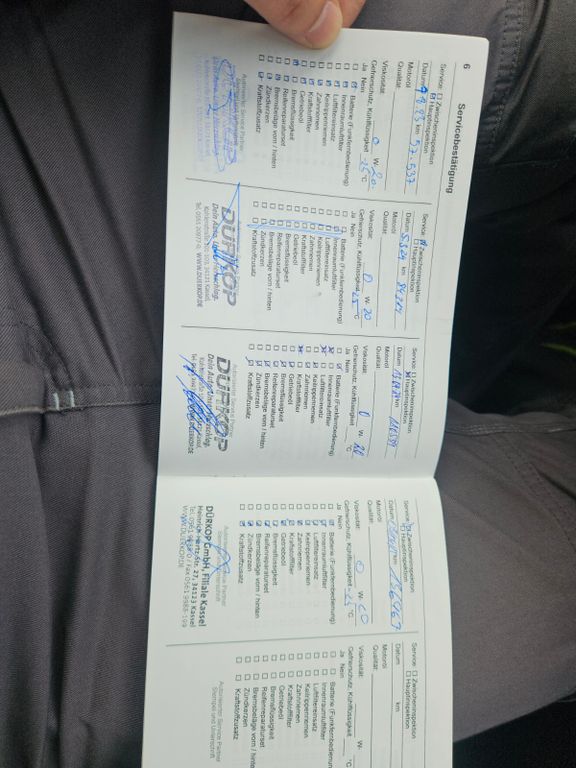 6
Servicebestätigung
Service: ☐ Zwischeninspektion
☒ Hauptinspektion
Datum km 57.537
Motoröl
Qualität:
Viskosität: 0 W- 20
Gefrierschutz, Kühlflüssigkeit -25 °C
Ja Nein
Batterie (Funkfernbedienung)
Innenraumluftfilter
Luftfiltereinsatz
Keilrippenriemen
Zahnriemen
Kraftstofffilter
Getriebeöl
Bremsflüssigkeit
Reifenreparaturset
Bremsbeläge vorn / hinten
Zündkerzen
Kraftstoffzusatz
Autorisierter Service Partner
Service: ☒ Zwischeninspektion
☐ Hauptinspektion
Datum 5.3.24 km
Motoröl
Qualität:
Viskosität: 0 W- 20
Gefrierschutz, Kühlflüssigkeit -25 °C
Ja Nein
Batterie (Funkfernbedienung)
Innenraumluftfilter
Luftfiltereinsatz
Keilrippenriemen
Zahnriemen
Kraftstofffilter
Getriebeöl
Bremsflüssigkeit
Reifenreparaturset
Bremsbeläge vorn / hinten
Zündkerzen
Kraftstoffzusatz
DÜRKOP
Dein Auto. Unser Vorschlag.
34123 Kassel
WWW.DUERKOP.DE
Service: ☐ Zwischeninspektion
☒ Hauptinspektion
Datum km
Motoröl
Qualität:
Viskosität: 0 W- 20
Gefrierschutz, Kühlflüssigkeit °C
Ja Nein
Batterie (Funkfernbedienung)
Innenraumluftfilter
Luftfiltereinsatz
Keilrippenriemen
Zahnriemen
Kraftstofffilter
Getriebeöl
Bremsflüssigkeit
Reifenreparaturset
Bremsbeläge vorn / hinten
Zündkerzen
Kraftstoffzusatz
Autorisierter Service Partner
DÜRKOP
Dein Auto. Unser Vorschlag.
Service: ☒ Zwischeninspektion
☐ Hauptinspektion
Datum 136463
Motoröl
Qualität:
Viskosität: 0 W-
Gefrierschutz, Kühlflüssigkeit -25 °C
Ja Nein
Batterie (Funkfernbedienung)
Innenraumluftfilter
Luftfiltereinsatz
Keilrippenriemen
Zahnriemen
Kraftstofffilter
Getriebeöl
Bremsflüssigkeit
Reifenreparaturset
Bremsbeläge vorn / hinten
Zündkerzen
Kraftstoffzusatz
Autorisierter Service Partner
DÜRKOP GmbH, Filiale Kassel
Heinrich-Hertz-Str. 27, 34123 Kassel
WWW.DUERKOP.DE
Service: ☐ Zwischeninspektion
☐ Hauptinspektion
Datum km
Motoröl
Qualität:
Viskosität: W-
Gefrierschutz, Kühlflüssigkeit °C
Ja Nein
Batterie (Funkfernbedienung)
Innenraumluftfilter
Luftfiltereinsatz
Keilrippenriemen
Zahnriemen
Kraftstofffilter
Getriebeöl
Bremsflüssigkeit
Reifenreparaturset
Bremsbeläge vorn / hinten
Zündkerzen
Kraftstoffzusatz
Autorisierter Service Partner
Stempel und Unterschrift